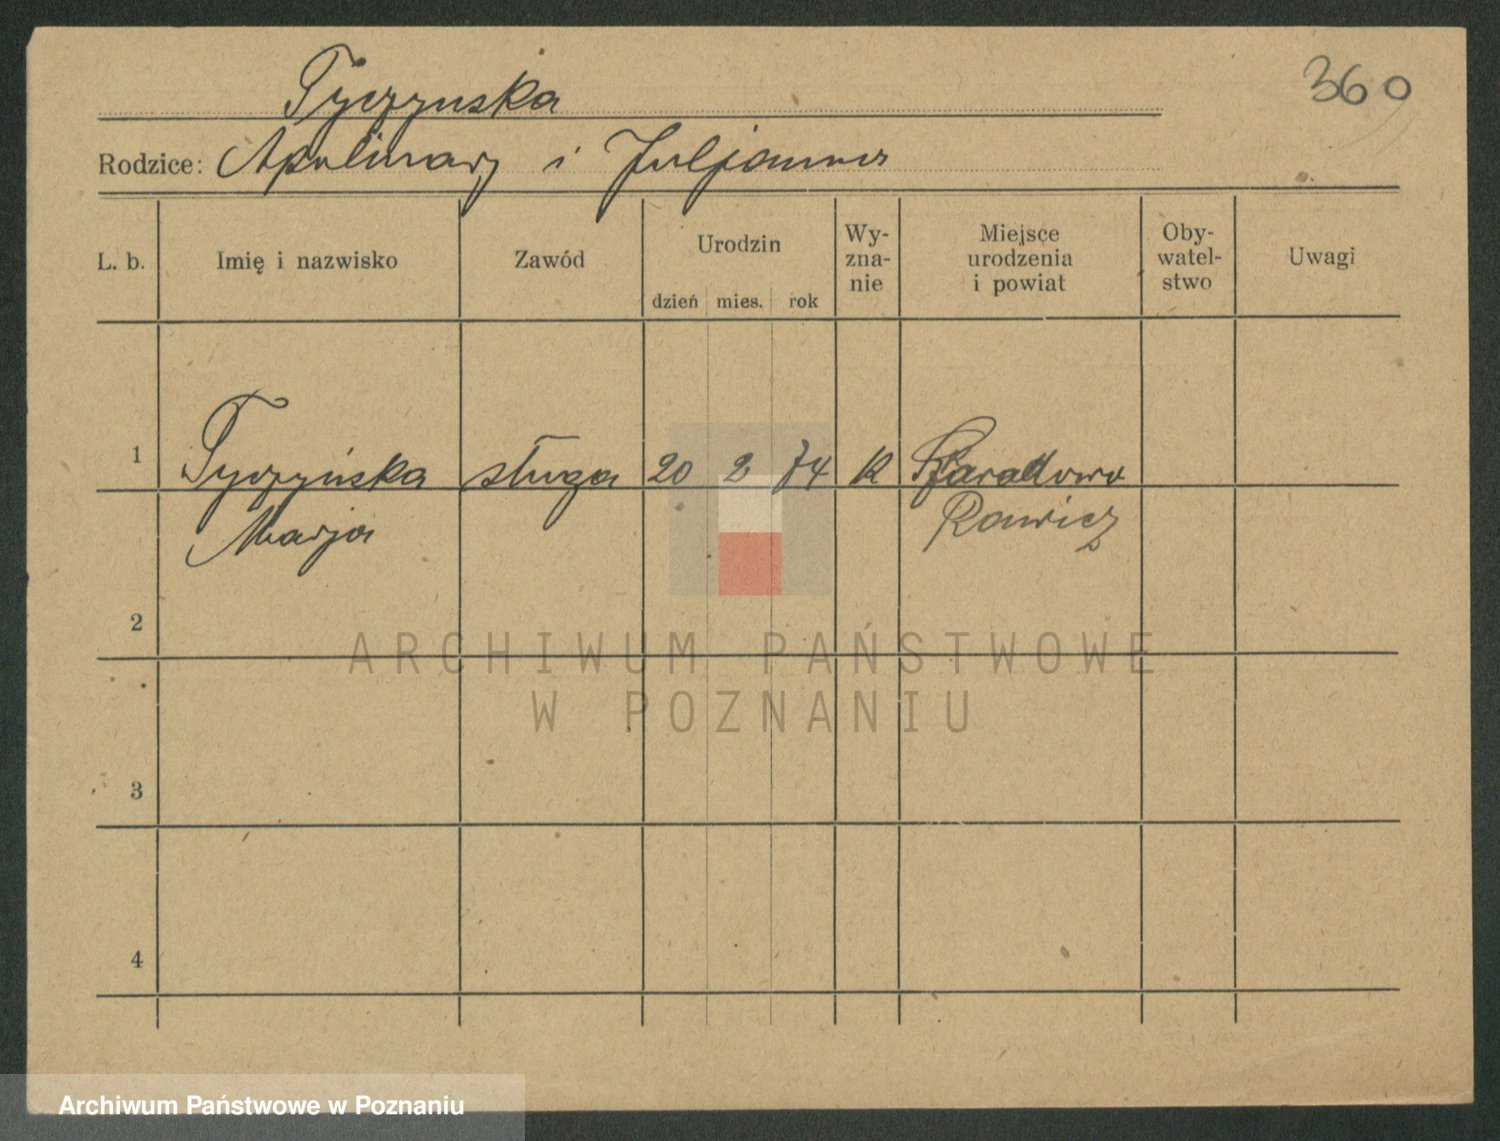 Tyczynska
360
Rodzice: Apolinary i Juljanna
L. b. Imię i nazwisko Zawód Urodzin dzień mies. rok Wy-zna-nie Miejsce urodzenia i powiat Oby-watel-stwo Uwagi
1 Tyczyńska sługa 20 2 74 k
Marja Rawicz
2
3
4
ARCHIWUM PAŃSTWOWE
W POZNANIU
Archiwum Państwowe w Poznaniu